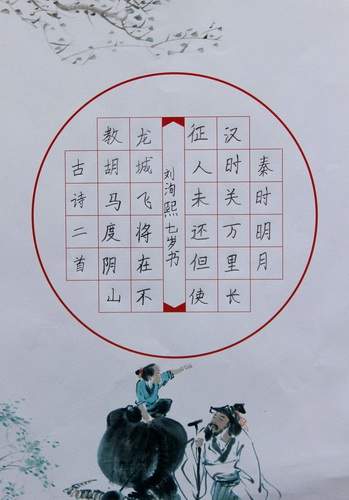 秦时明月
汉时关万里长
征人未还但使
刘洵熙七岁书
龙城飞将在不
教胡马度阴山
古诗二首